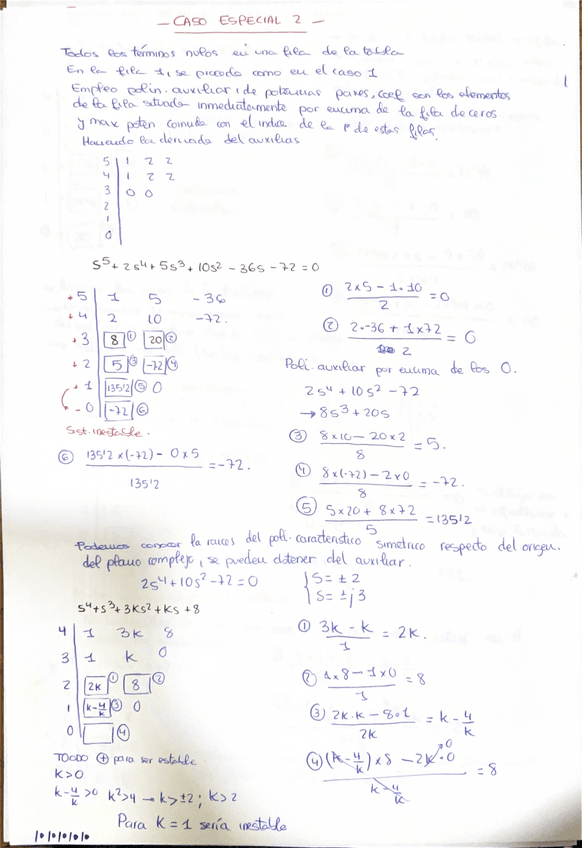 - CASO ESPECIAL 2 -
Todos los términos nulos en una fila de la tabla
En la fila 1, se procede como en el caso 1
Empleo polin. auxiliar, de potencias pares, coef son los elementos
de la fila situada inmediatamente por encima de la fila de ceros
y max poten coincide con el indice de la 1ª de estas filas.
Haciendo la derivada del auxiliar
5 | 1 2 2
4 | 1 2 2
3 | 0 0
2
1
0
s⁵ + 2s⁴ + 5s³ + 10s² - 36s - 72 = 0
+ 5 | 1 5 -36
+ 4 | 2 10 -72.
+ 3 | 8 ① 20 ②
+ 2 | 5 ③ -72 ④
+ 1 | 135'2 ⑤ 0
- 0 | -72 ⑥
Sst. inestable.
① (2x5 - 1·10)/2 = 0
② (2·-36 + 1x72)/2 = 0
Poli. auxiliar por encima de los 0.
2s⁴ + 10s² - 72
→ 8s³ + 20s
③ (8x10 - 20x2)/8 = 5.
④ (8x(-72) - 2x0)/8 = -72.
⑤ (5x20 + 8x72)/5 = 135'2
⑥ (135'2x(-72) - 0x5)/135'2 = -72.
Podemos conocer la raices del poli. caracteristico simetrico respecto del origen
del plano complejo, se pueden obtener del auxiliar.
2s⁴ + 10s² - 72 = 0 { S = ± 2
S = ± j3
s⁴ + s³ + 3Ks² + Ks + 8
4 | 1 3K 8
3 | 1 K 0
2 | 2K ① 8 ②
1 | K - 4/K ③ 0
0 | ④
① (3K - K)/1 = 2K.
② (1x8 - 1x0)/1 = 8
③ (2K·K - 8·1)/2K = K - 4/K
④ ((K - 4/K)x8 - 2K·0)/(K - 4/K) = 8
TODO ⊕ para ser estable.
K > 0
K - 4/K > 0 K² > 4 → K > ±2 ; K > 2
Para K = 1 sería inestable